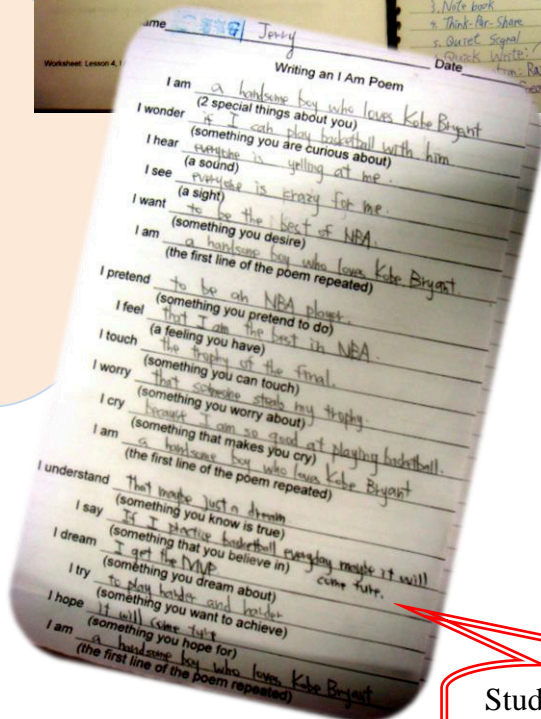 3. Note book
4. Think-Par-Share
5. Quiet Signal
Quick Write:
Worksheet: Lesson 4,
ame Jerry Date
Writing an I Am Poem
I am a handsome boy who loves Kobe Bryant
(2 special things about you)
I wonder if I can play basketball with him
(something you are curious about)
I hear everyone is yelling at me.
(a sound)
I see everyone is crazy for me.
(a sight)
I want to be the best of NBA.
(something you desire)
I am a handsome boy who loves Kobe Bryant.
(the first line of the poem repeated)
I pretend to be an NBA player.
(something you pretend to do)
I feel that I am the best in NBA.
(a feeling you have)
I touch the trophy of the final.
(something you can touch)
I worry that someone steals my trophy.
(something you worry about)
I cry because I am so good at playing basketball.
(something that makes you cry)
I am a handsome boy who loves Kobe Bryant
(the first line of the poem repeated)
I understand that maybe just a dream
(something you know is true)
I say If I practice basketball everyday maybe it will
come ture.
(something that you believe in)
I dream I get the MVP
(something you dream about)
I try to play harder and harder
(something you want to achieve)
I hope it will come ture
(something you hope for)
I am a handsome boy who loves Kobe Bryant
(the first line of the poem repeated)
Stud